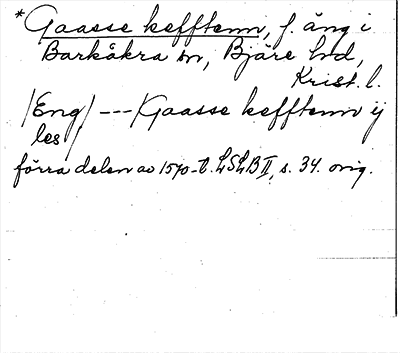 * Gaasse kefftenn, f. äng i
Barkåkra sn, Bjäre hd,
Krist. l.
/Eng/ --- /Gaasse kefftenn ij
les/
förra delen av 1570-t. LSLB II, s. 34. orig.